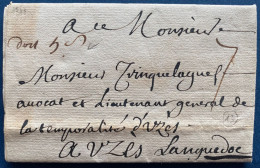 a ce Monsieur
Monsieur Trinquelague
avocat et Lieutenant general de
la temporalité d'uzès
a uzes Languedoc